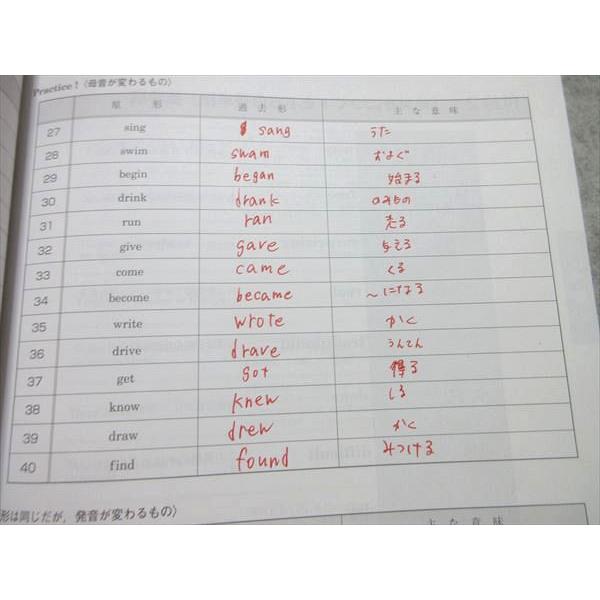 Practice!〈母音が変わるもの〉
原形 過去形 主な意味
27 sing sang うた
28 swim swam およぐ
29 begin began 始まる
30 drink drank のみもの
31 run ran 走る
32 give gave 与える
33 come came くる
34 become became 〜になる
35 write wrote かく
36 drive drave うんてん
37 get got 得る
38 know knew しる
39 draw drew かく
40 find found みつける
形は同じだが，発音が変わるもの〉
主な意味